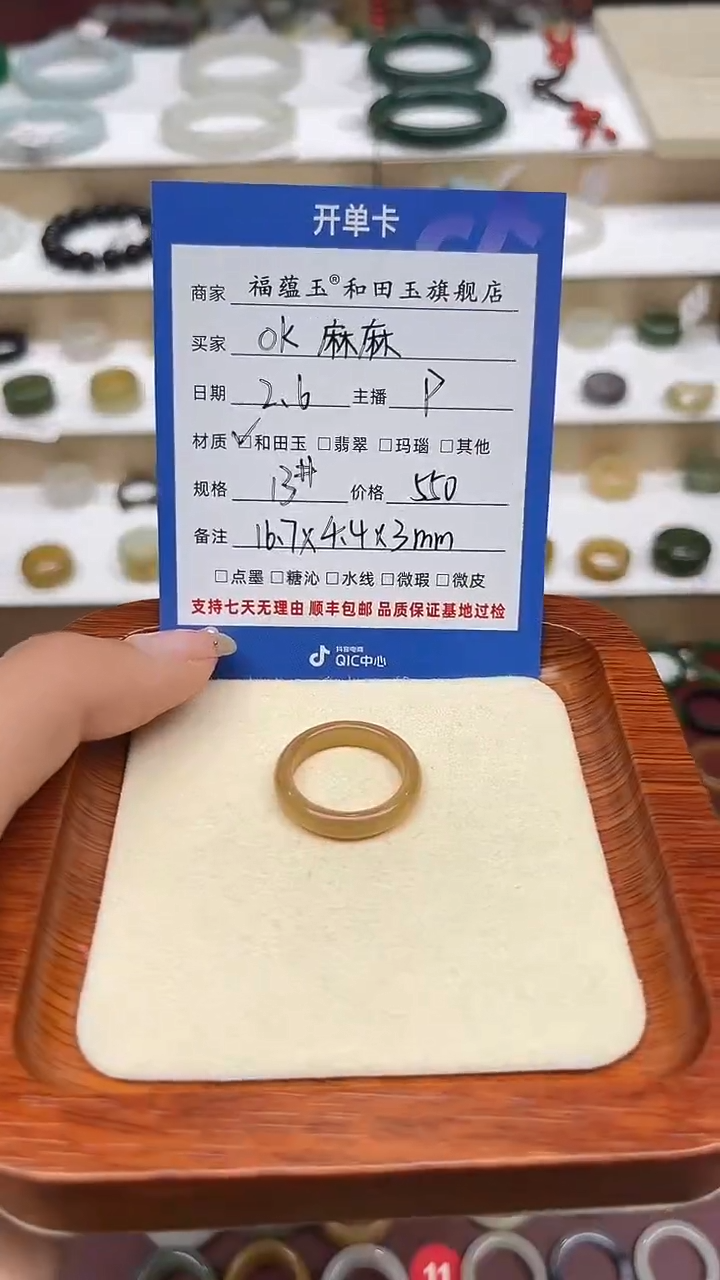 开单卡
商家 福蕴玉®和田玉旗舰店
买家 OK 麻麻
日期 2.6 主播 P
材质 ☑和田玉 □翡翠 □玛瑙 □其他
规格 13# 价格 550
备注 16.7×4.4×3mm
□点墨 □糖沁 □水线 □微瑕 □微皮
支持七天无理由 顺丰包邮 品质保证基地过检
抖音电商
QIC中心
11